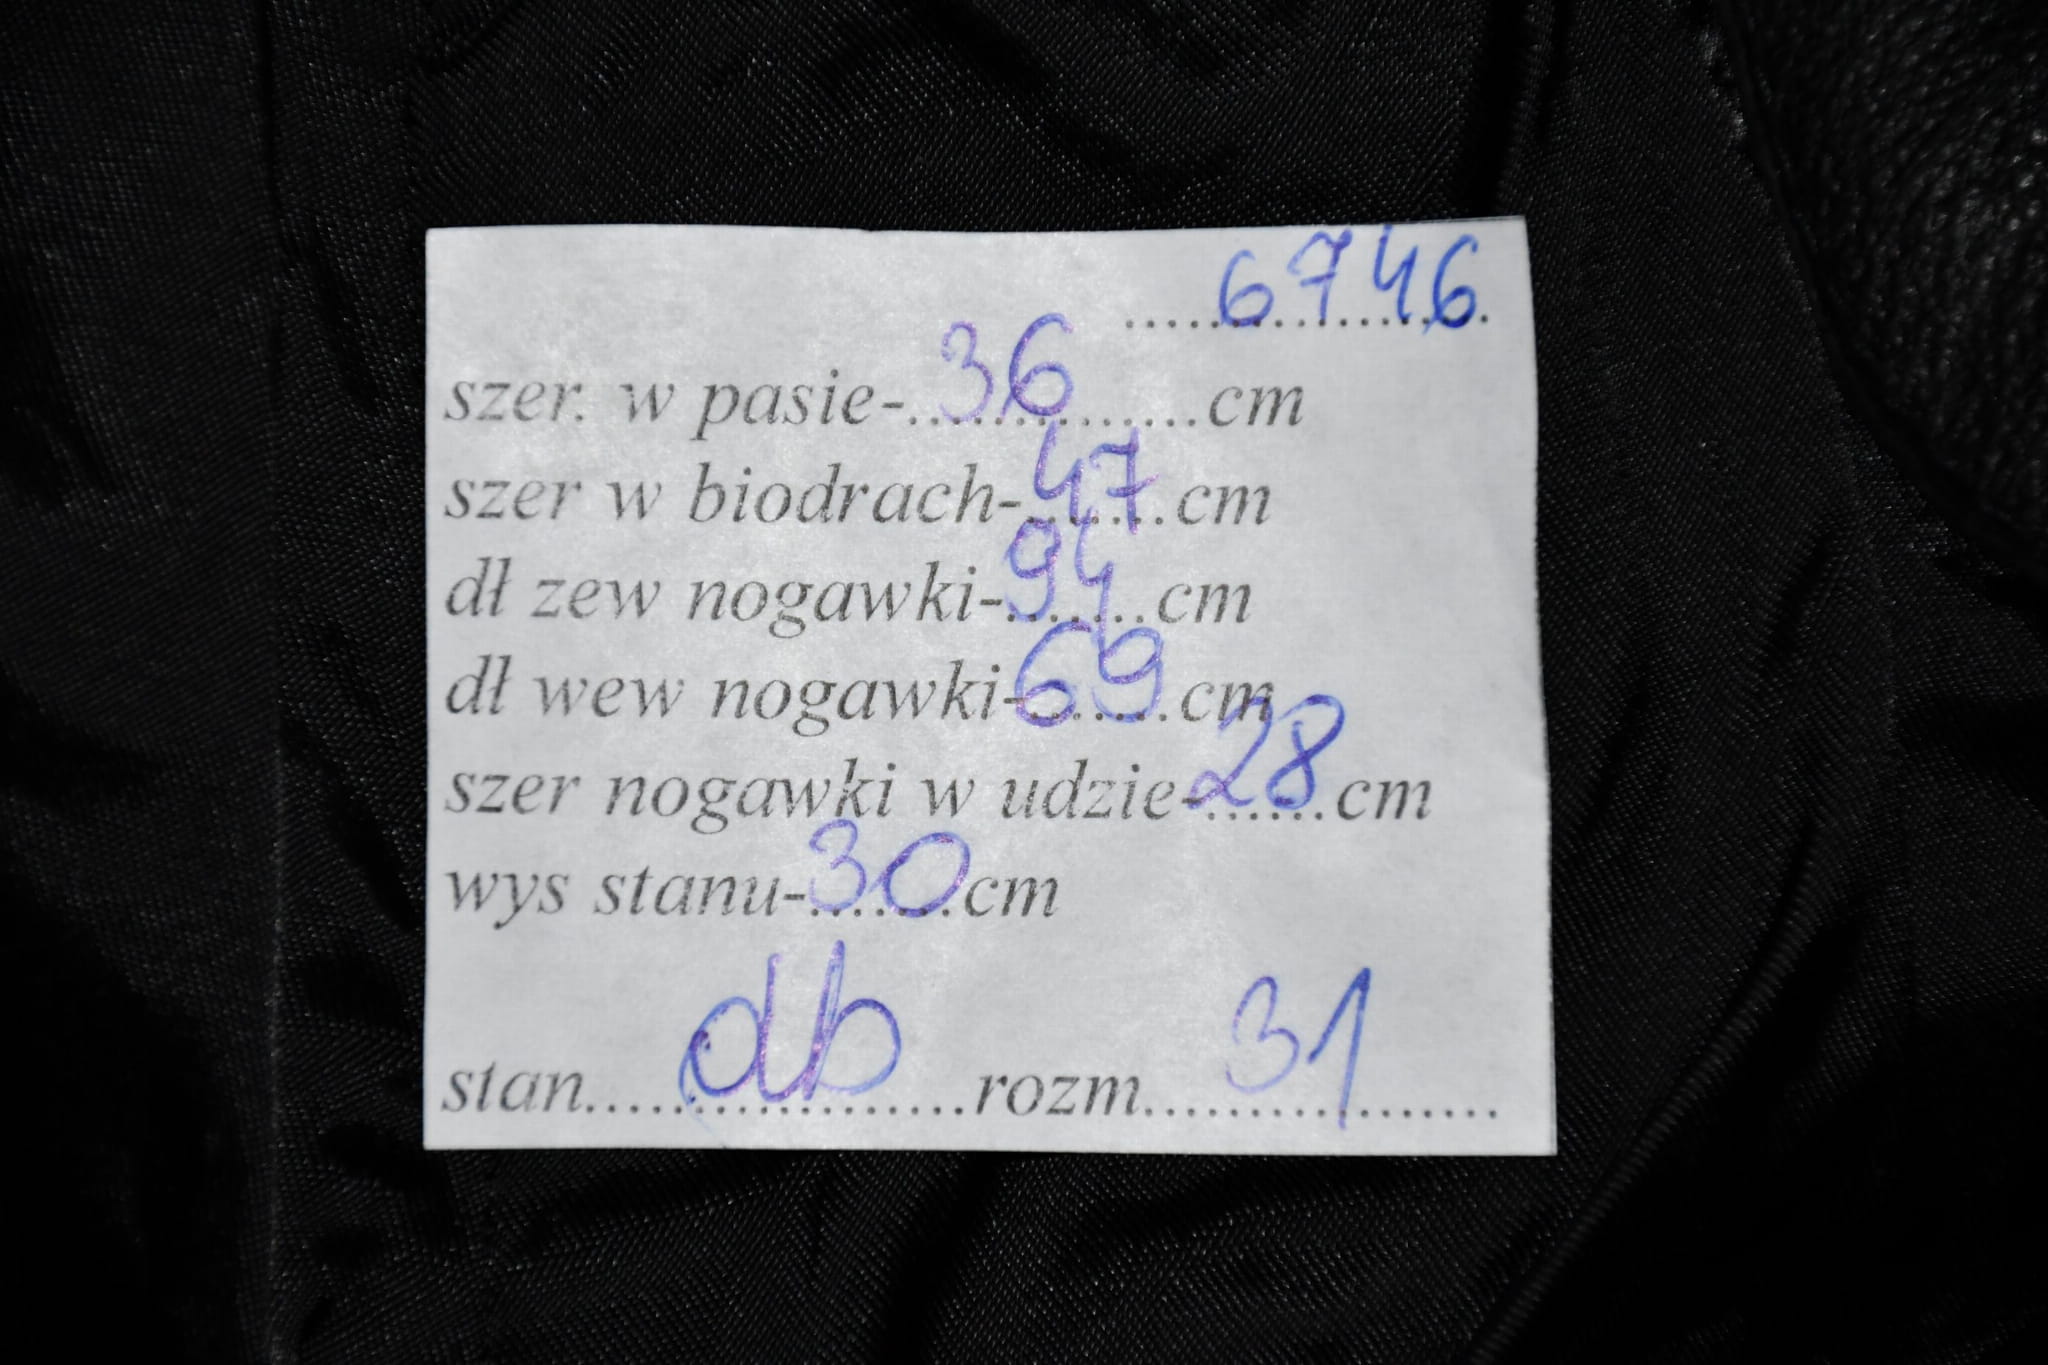 6746
szer. w pasie-...36...cm
szer w biodrach-.47..cm
dł zew nogawki-.94..cm
dł wew nogawki-.69..cm
szer nogawki w udzie-.28..cm
wys stanu-.30.cm
stan.....db.....rozm.....31.....